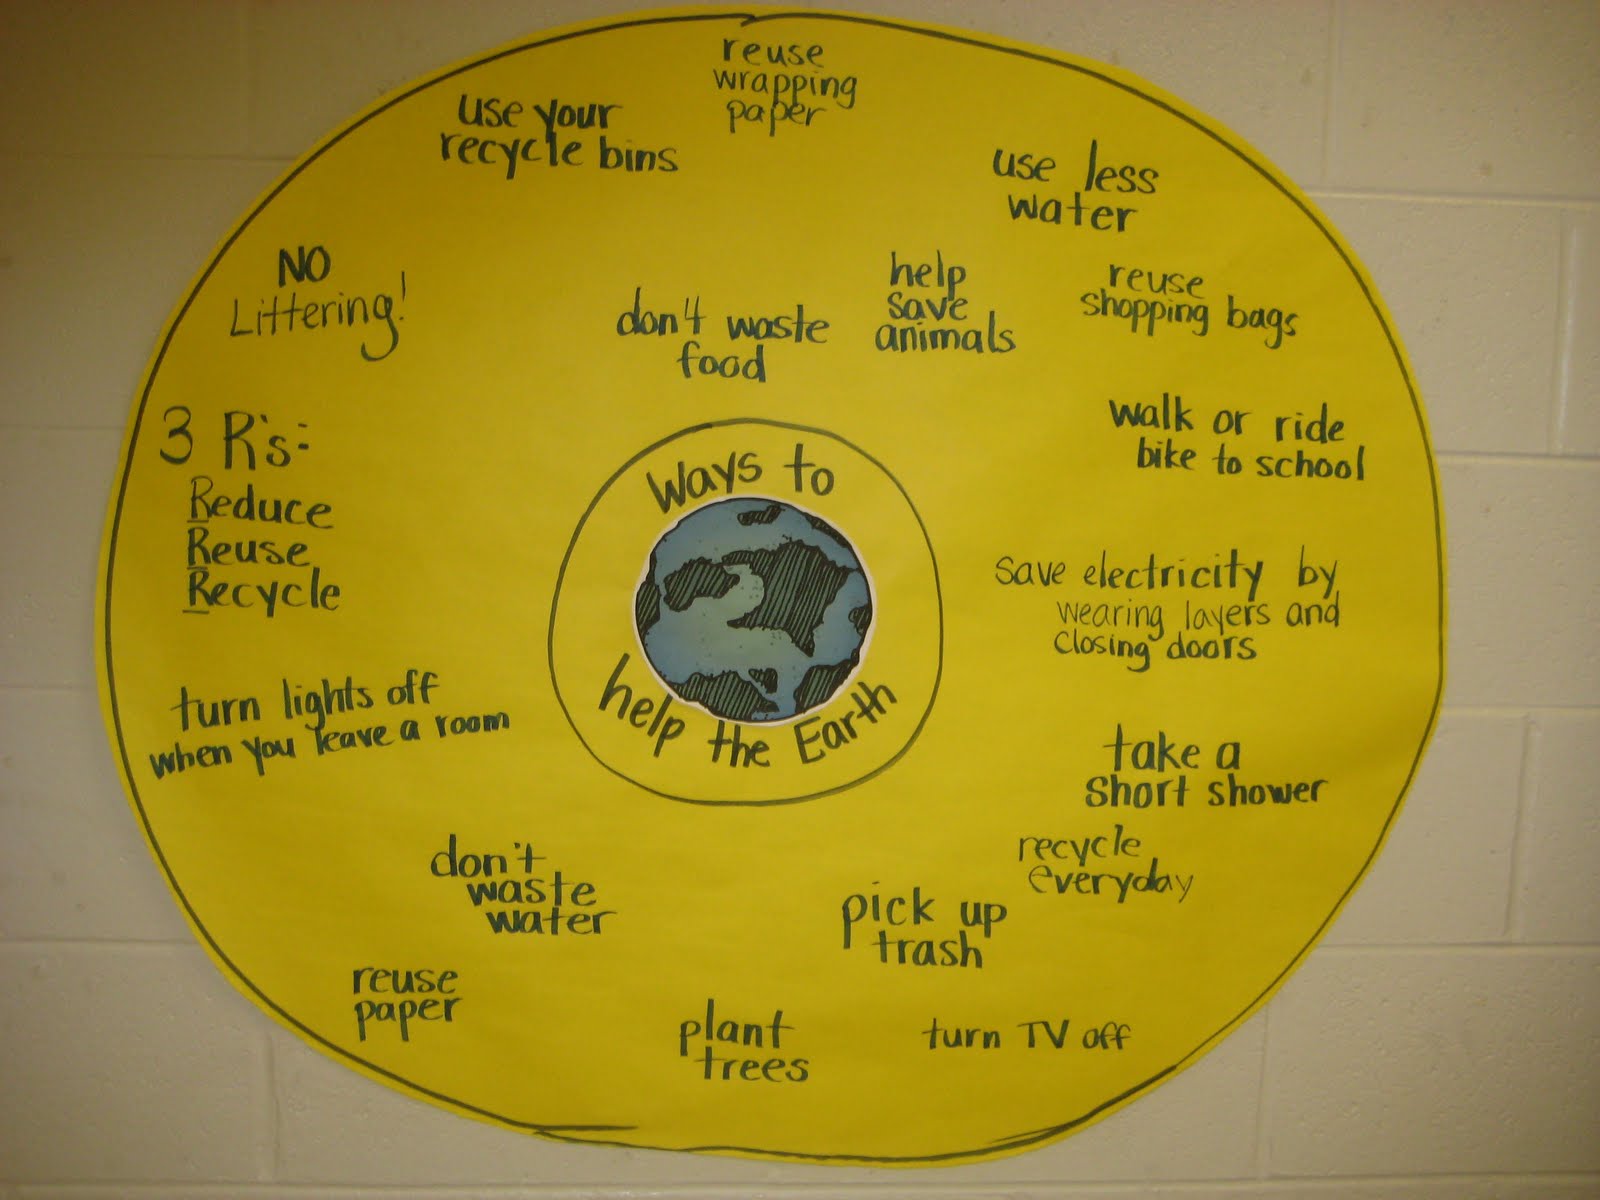 reuse
wrapping
paper
use your
recycle bins
use less
water
NO
Littering!
don't waste
food
help
save
animals
reuse
shopping bags
3 R's:
Reduce
Reuse
Recycle
walk or ride
bike to school
Ways to
help the Earth
save electricity by
wearing layers and
closing doors
turn lights off
when you leave a room
take a
short shower
don't
waste
water
recycle
everyday
pick up
trash
reuse
paper
plant
trees
turn TV off